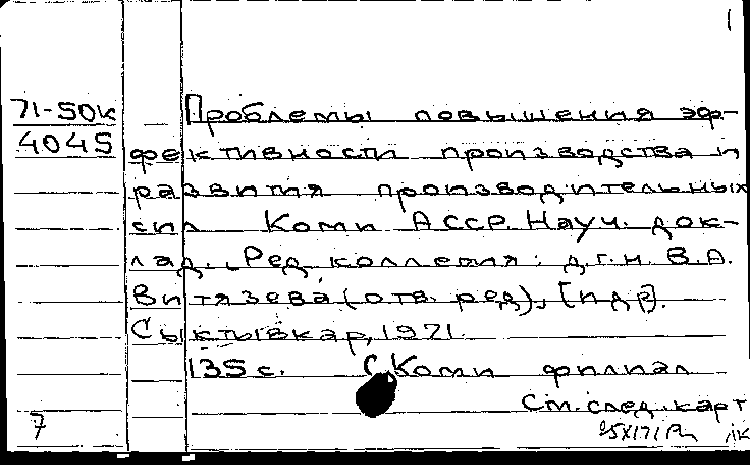 1
71-50к Проблемы повышения эф-
4045 фективности производства и
развития производительных
сил Коми АССР. Науч. док-
лад. Ред. коллегия: д.г.н. В.А.
Витязева (отв. ред), [и др].
Сыктывкар, 1971.
135 с. (Коми филиал
См. след. карт
7